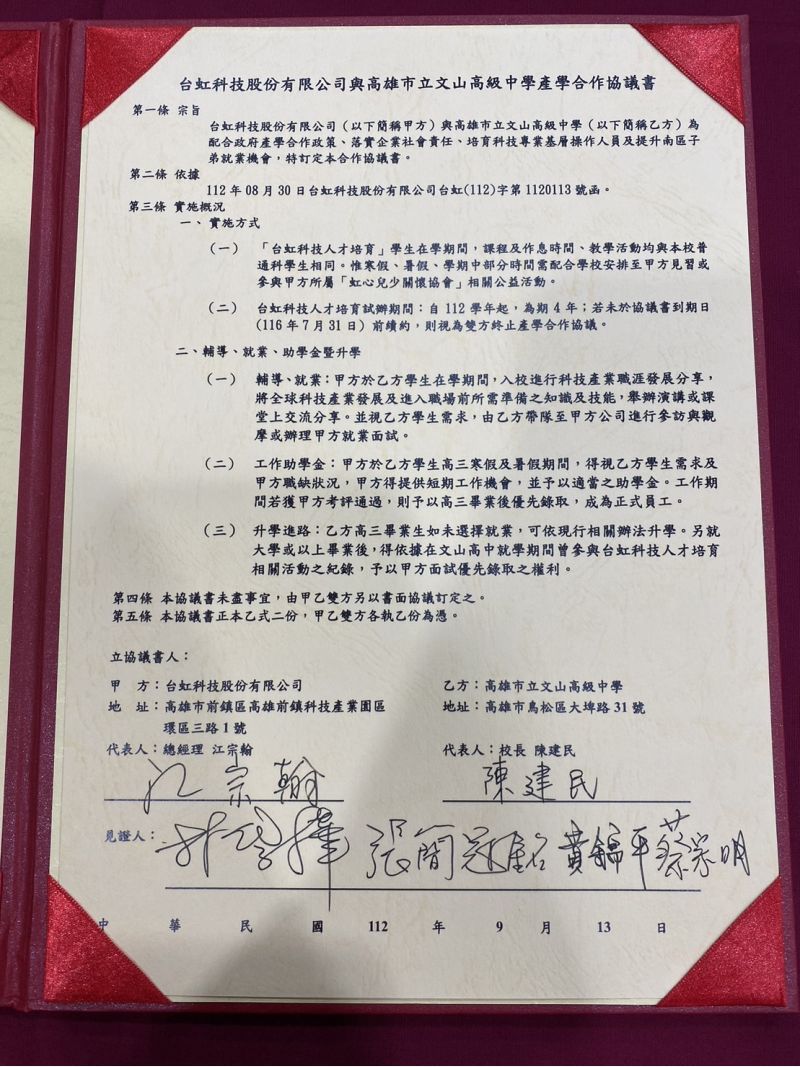 台虹科技股份有限公司與高雄市立文山高級中學產學合作協議書
第一條 宗旨
台虹科技股份有限公司（以下簡稱甲方）與高雄市立文山高級中學（以下簡稱乙方）為
配合政府產學合作政策、落實企業社會責任、培育科技專業基層操作人員及提升南區子
弟就業機會，特訂定本合作協議書。
第二條 依據
112 年 08 月 30 日台虹科技股份有限公司台虹(112)字第 1120113 號函。
第三條 實施概況
一、實施方式
（一） 「台虹科技人才培育」學生在學期間，課程及作息時間、教學活動均與本校普
通科學生相同。惟寒假、暑假、學期中部分時間需配合學校安排至甲方見習或
參與甲方所屬「虹心兒少關懷協會」相關公益活動。
（二） 台虹科技人才培育試辦期間：自 112 學年起，為期 4 年；若未於協議書到期日
(116 年 7 月 31 日) 前續約，則視為雙方終止產學合作協議。
二、輔導、就業、助學金暨升學
（一） 輔導、就業：甲方於乙方學生在學期間，入校進行科技產業職涯發展分享，
將全球科技產業發展及進入職場前所需準備之知識及技能，舉辦演講或課
堂上交流分享。並視乙方學生需求，由乙方帶隊至甲方公司進行參訪與觀
摩或辦理甲方就業面試。
（二） 工作助學金：甲方於乙方學生高三寒假及暑假期間，得視乙方學生需求及
甲方職缺狀況，甲方得提供短期工作機會，並予以適當之助學金。工作期
間若獲甲方考評通過，則予以高三畢業後優先錄取，成為正式員工。
（三） 升學進路：乙方高三畢業生如未選擇就業，可依現行相關辦法升學。另就
大學或以上畢業後，得依據在文山高中就學期間曾參與台虹科技人才培育
相關活動之紀錄，予以甲方面試優先錄取之權利。
第四條 本協議書未盡事宜，由甲乙雙方另以書面協議訂定之。
第五條 本協議書正本乙式二份，甲乙雙方各執乙份為憑。
立協議書人：
甲 方：台虹科技股份有限公司 乙方：高雄市立文山高級中學
地 址：高雄市前鎮區高雄前鎮科技產業園區 地址：高雄市鳥松區大埤路 31 號
環區三路 1 號
代表人：總經理 江宗翰 代表人：校長 陳建民
江宗翰 陳建民
見證人： 張簡冠銘 黃錦平 蔡宗明
中 華 民 國 112 年 9 月 13 日